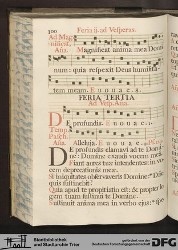 300 Feria ii. ad Vesperas.
Ad Mag-
nificat,
Aña. Magnificat anima mea Domi-
num: quia respexit Deus humilita-
tem meam. E u o u a e.
FERIA TERTIA
Ad Vesp. Aña.
De profundis. E u o u a e.
Temp.
Pasch.
Aña. Alleluja. E u o u a e.
De profundis clamavi ad te Do-
mine: Domine exaudi vocem meam.
Fiant aures tuæ intendentes: in vo-
cem deprecationis meæ.
Si iniquitates observaveris Domine: Domine
quis sustinebit?
Quia apud te propitiatio est: & propter le-
gem tuam sustinui te Domine.
Sustinuit anima mea in verbo ejus:
Stadtbibliothek
und Stadtarchiv Trier
DFG